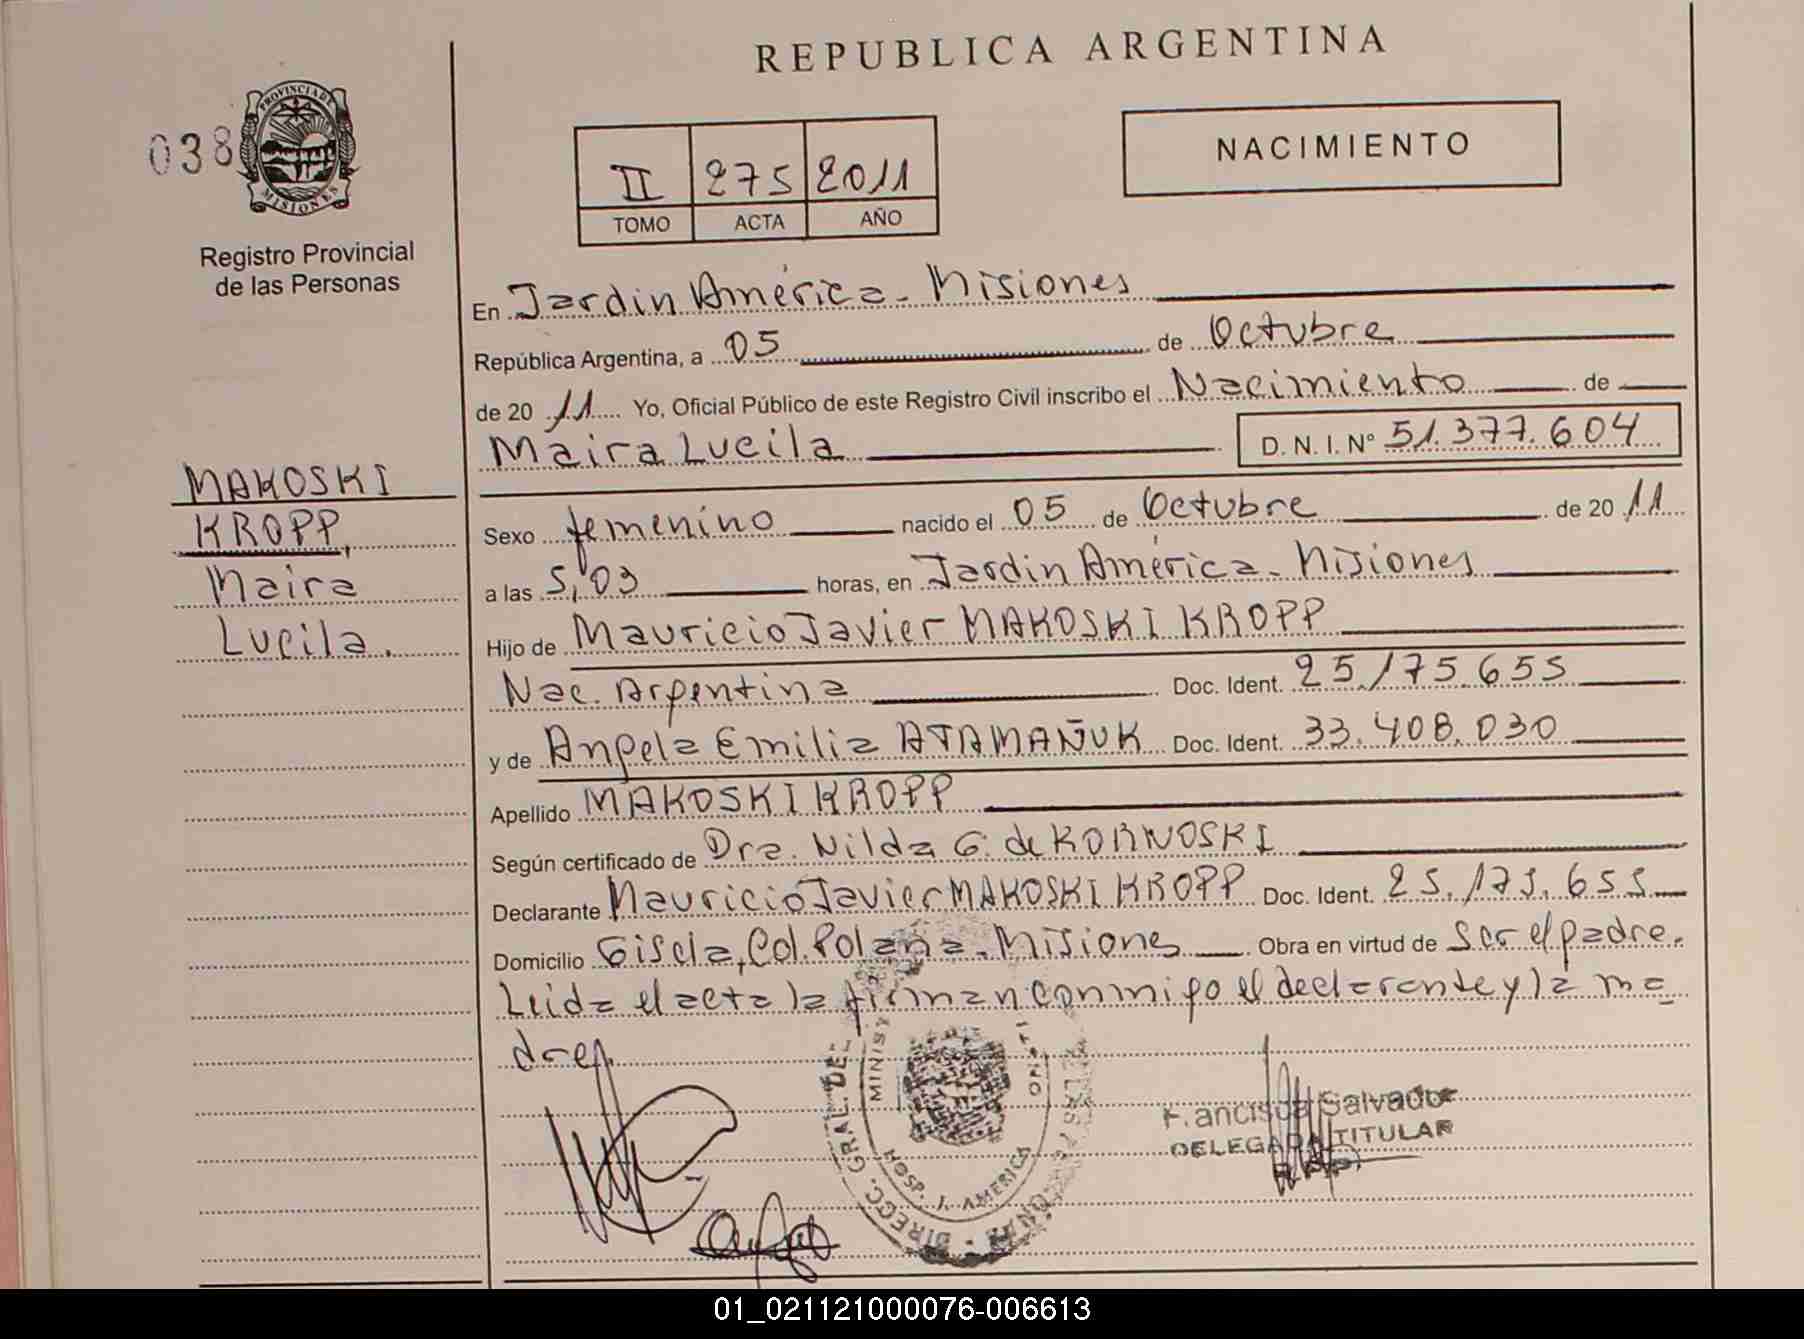 REPUBLICA ARGENTINA
038
PROVINCIA DE
MISIONES
Registro Provincial
de las Personas
II 275 2011
TOMO ACTA AÑO
NACIMIENTO
En Jardin América - Misiones
República Argentina, a 05 de Octubre
de 20 11 Yo, Oficial Público de este Registro Civil inscribo el Nacimiento de
Maira Lucila D. N. I. Nº 51.377.604
MAKOSKI
KROPP,
Maira
Lucila.
Sexo femenino nacido el 05 de Octubre de 20 11
a las 5,03 horas, en Jardin América - Misiones
Hijo de Mauricio Javier MAKOSKI KROPP
Nac. Argentina Doc. Ident. 25.175.655
y de Angela Emilia ATAMAÑUK Doc. Ident. 33.408.030
Apellido MAKOSKI KROPP
Según certificado de Dra. Nilda G. de KORNOSKI
Declarante Mauricio Javier MAKOSKI KROPP Doc. Ident. 25.175.655
Domicilio Gisela, Col. Polana - Misiones Obra en virtud de ser el padre.
Leida el acta la firman conmigo el declarante y la ma
dre
DIRECC. GRAL. DE
MINIS
HOSP. J. AMERICA
Salvador
DELEGADA TITULAR
01_021121000076-006613